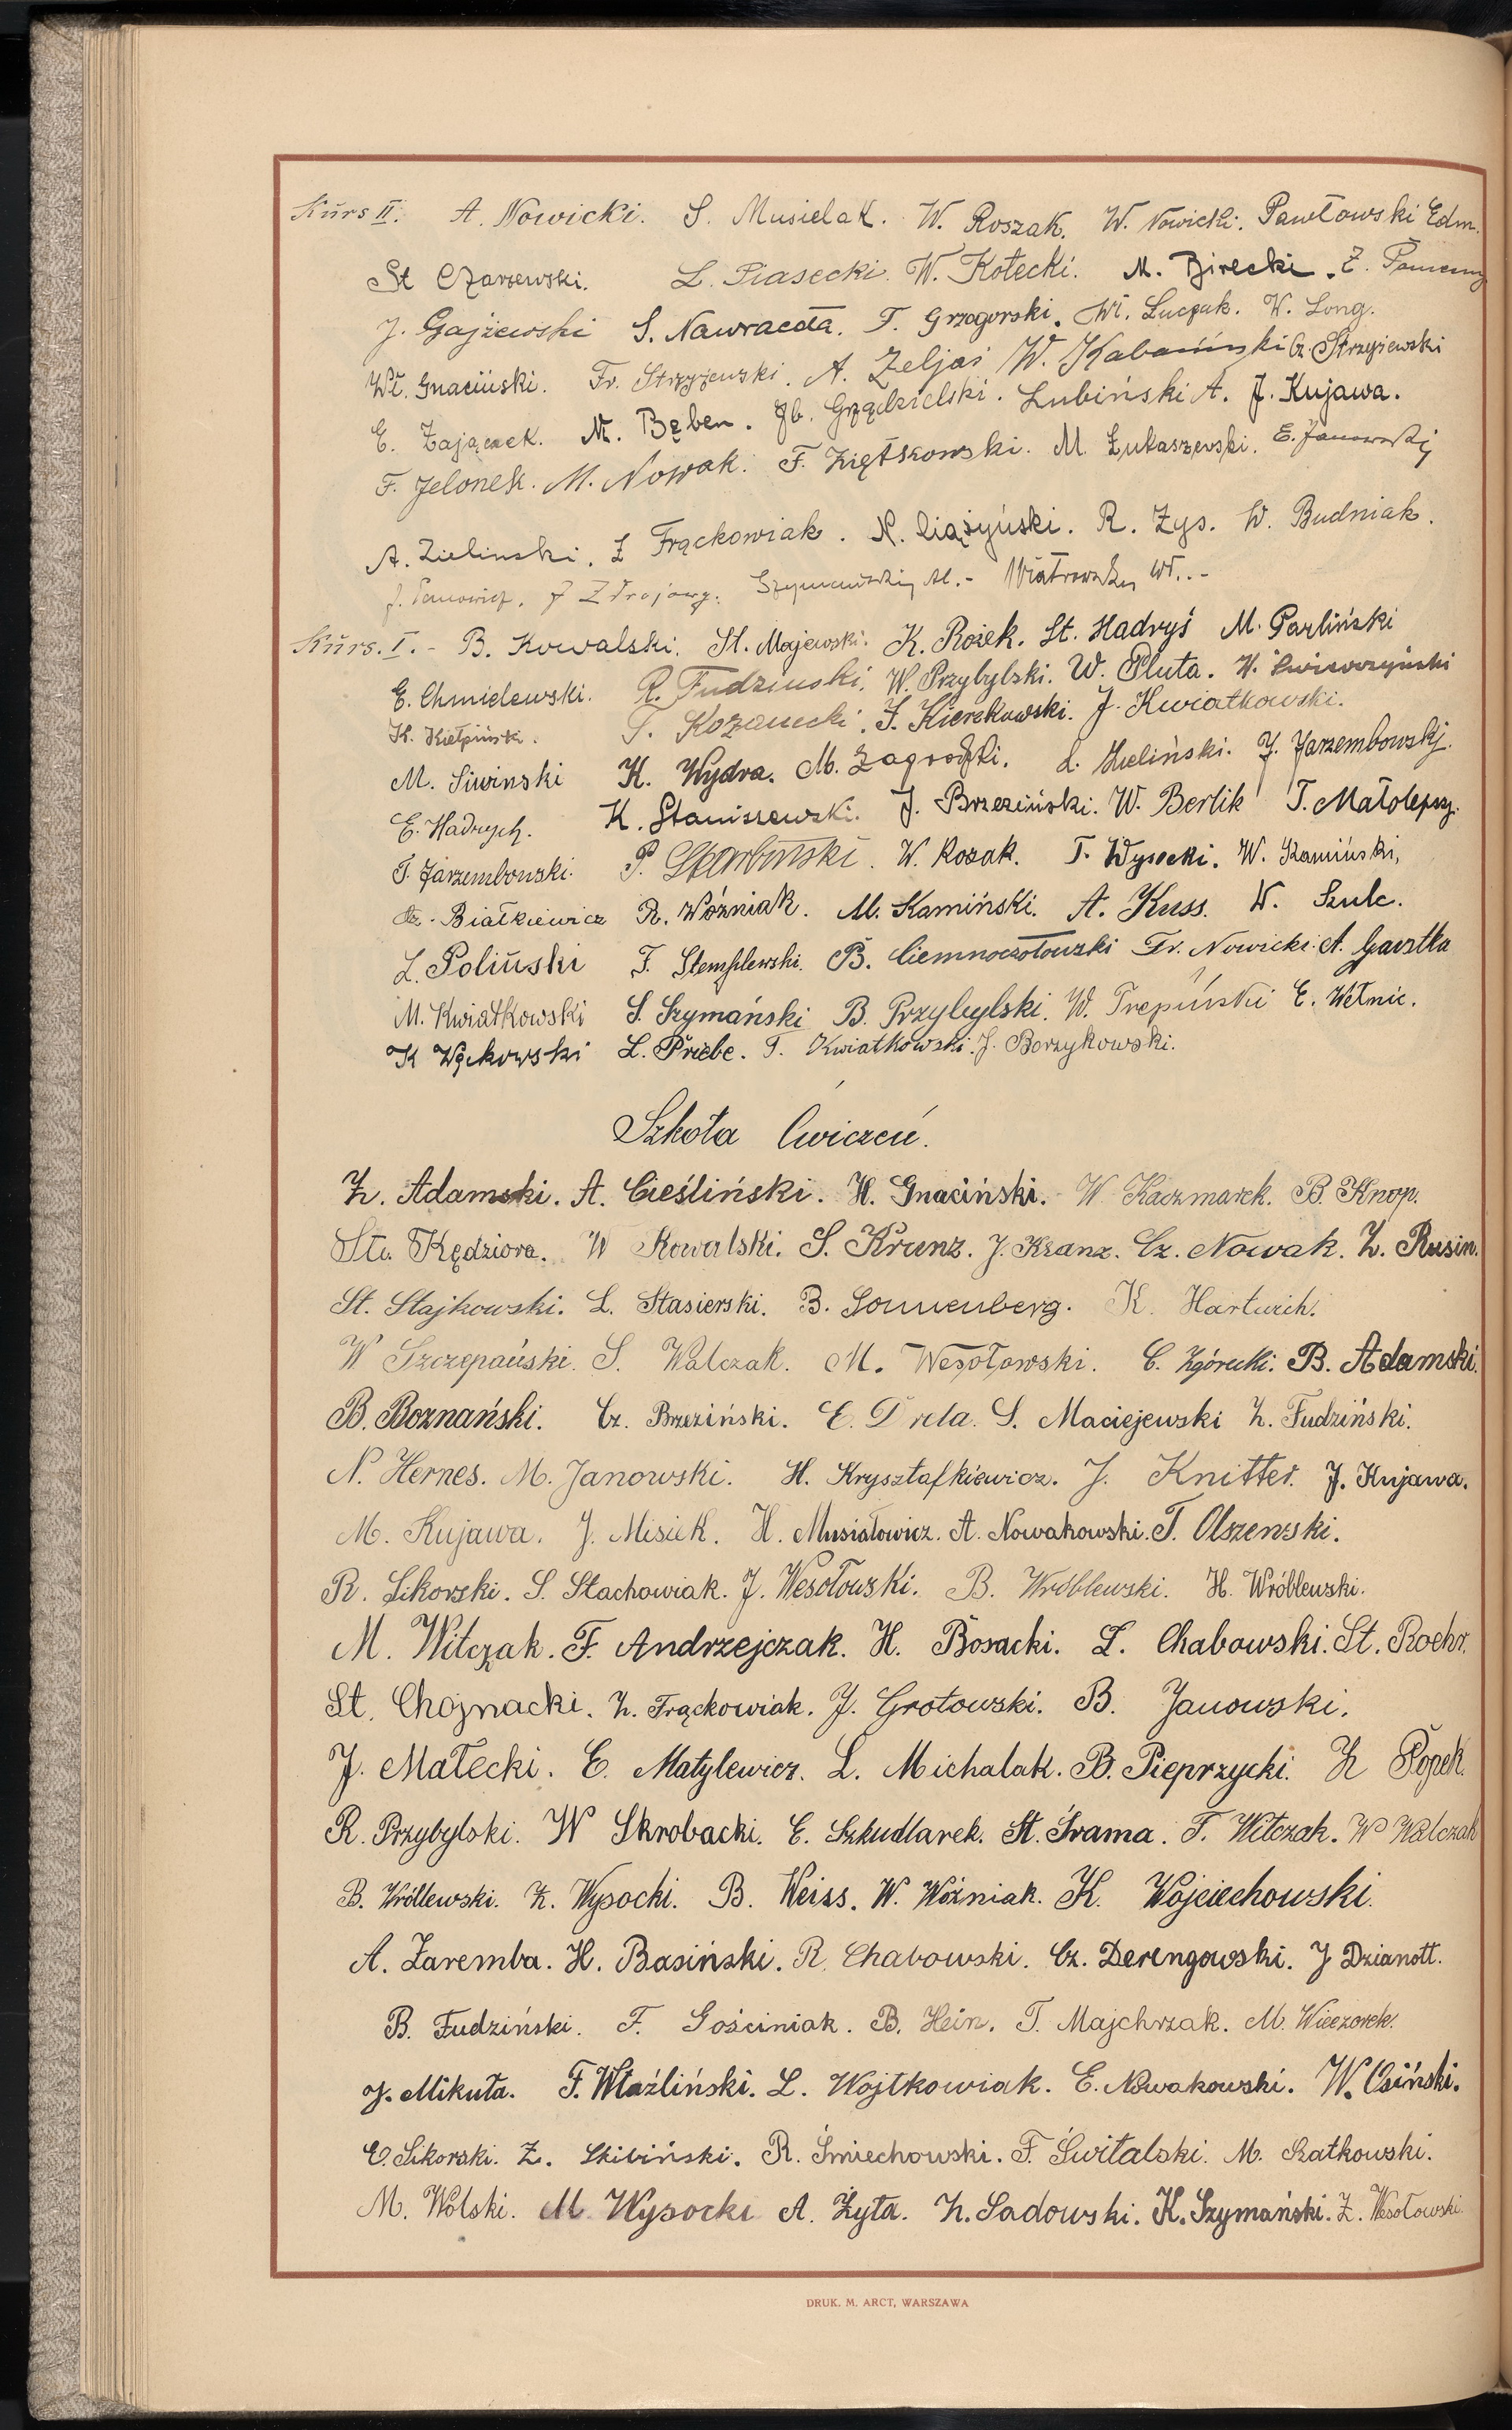 Kurs II. A. Nowicki. S. Musielak. W. Roszak. W. Nowicki. Pawłowski Edm.
St Czarzewski. L. Piasecki. W. Kotecki. M. Birecki. Z.
J. Gajżewski S. Nawracała. T. Grzegorski. Wł. Luczak. W. Long.
Wł. Gnaciński. Fr. Strzyżewski. A. Zeljaś W. Kabaciński Cz. Strzyżewski
E. Zajączek. M. Bęben. Grządzielski. Lubiński A. J. Kujawa.
F. Jelonek. M. Nowak. F. Ziętkowski. M. Łukaszewski. E. Janowski
A. Zielinski. Z Frąckowiak. N. Ciążyński. R. Zys. W. Budniak.
J. J Zdrojowy. Szymański M.- Wiatrowski Wł..-
Kurs. I. - B. Kowalski. St. Majewski. K. Rożek. St. Hadryś M. Parliński
E. Chmielewski. R. Fudzinski. W. Przybylski. W. Pluta. W.
K. Kiełpiński. T. Kozanecki. F. Kierekowski. J. Kwiatkowski.
M. Siwinski K. Wydra. M. Zagrodzki. L. Zieliński. J. Jarzembowski.
E. Hadrych. K. Staniszewski. J. Brzeziński. W. Berlik T. Małolepszy.
T. Jarzembowski. P. Skarbiński. W. Kozak. T. Wysocki. W. Kamiński,
Cz. Białkiewicz R. Woźniak. M. Kamiński. A. Kuss. W. Szulc.
L. Poliński F. Stemplewski. B. Ciemnoczołowski Fr. Nowicki. A. Gawztka
M. Kwiatkowski S. Szymański B. Przybylski. W. Trepiński E. Wełnic.
K Wąkowski L. Priebe. T. Kwiatkowski. J. Borzykowski.
Szkoła Ćwiczeń.
Z. Adamski. A. Cieśliński. H. Gnaciński. W. Kaczmarek. B. Knop.
Stu. Kędziora. W Kowalski. S. Kranz. J. Kranz. Cz. Nowak. Z. Rusin.
St. Stajkowski. L. Stasierski. B. Sonnenberg. K. Hartwich.
W Szczepański. S. Walczak. M. Wesołowski. C. Zgórecki. B. Adamski.
B. Boznański. Cz. Brzeziński. E. Dreta. S. Maciejewski Z. Fudziński.
N. Hernes. M. Janowski. H. Krysztafkiewicz. J. Knitter. J. Kujawa.
M. Kujawa. J. Misiek. H. Musiałowicz. A. Nowakowski. T. Olszewski.
R. Sikorski. S. Stachowiak. J. Wesołowski. B. Wróblewski. H. Wróblewski.
M. Witczak. F. Andrzejczak. H. Bosacki. L. Chabowski. St. Roehr.
St. Chojnacki. Z. Frąckowiak. J. Grotowski. B. Janowski.
J. Małecki. E. Matylewicz. L. Michalak. B. Pieprzycki. Z Popek.
R. Przybylski. W Skrobacki. E. Szkudlarek. St. Śrama. F. Witczak. W Walczak
B. Wróblewski. Z. Wysocki. B. Weiss. W. Woźniak. K. Wojciechowski.
A. Zaremba. H. Basiński. R. Chabowski. Cz. Derengowski. J Dzianott.
B. Fudziński. F. Gościniak. B. Hein. T. Majchrzak. M. Wieczorek.
J. Mikuła. F. Właźliński. L. Wojtkowiak. E. Nowakowski. W. Osiński.
E. Sikorski. Z. Skibiński. R. Śmiechowski. F. Świtalski. M. Szatkowski.
M. Wolski. M Wysocki A. Żyta. Z. Sadowski. K. Szymański. Z. Wesołowski
DRUK. M. ARCT, WARSZAWA